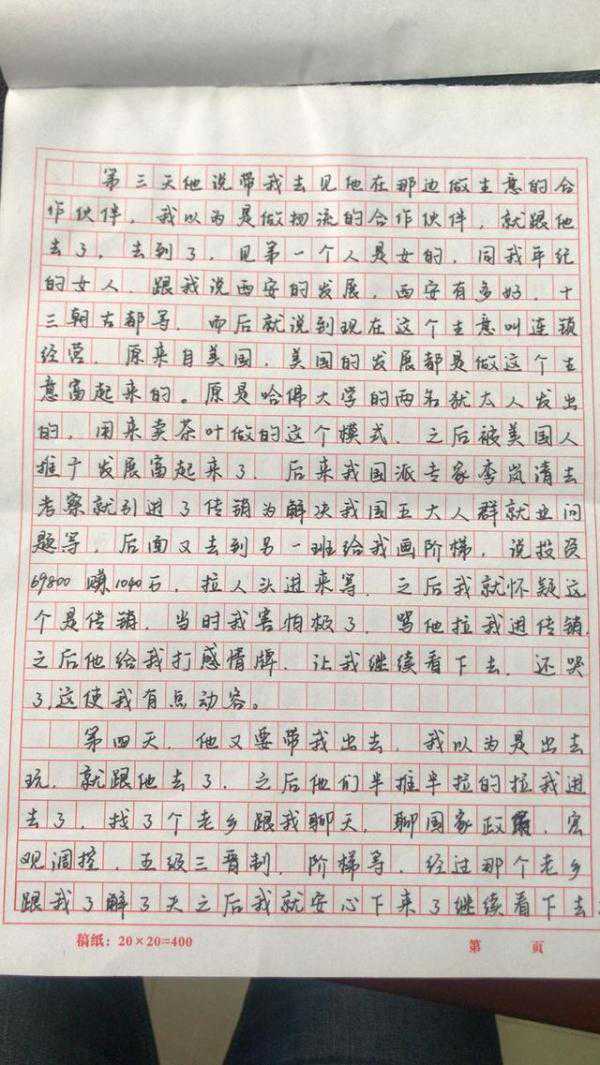 第三天他说带我去见他在那边做生意的合
作伙伴，我以为是做物流的合作伙伴，就跟他
去了，去到了，见第一个人是女的，同我年纪
的女人，跟我说西安的发展，西安有多好，十
三朝古都等，而后就说到现在这个生意叫连锁
经营，原来自美国，美国的发展都是做这个生
意富起来的。原是哈佛大学的两名犹太人发出
的，用来卖茶叶做的这个模式，之后被美国人
推广发展富起来了，后来我国派专家李岚清去
考察就引进了传销为解决我国五大人群就业问
题等，后面又去到另一班给我画阶梯，说投资
69800赚1040万，拉人头进来等，之后我就怀疑这
个是传销，当时我害怕极了，骂他拉我进传销，
之后他给我打感情牌，让我继续看下去，还哭
了，这使我有点动容。
第四天，他又要带我出去，我以为是出去
玩，就跟他去了，之后他们半推半拉的拉我进
去了，找了个老乡跟我聊天，聊国家政策，宏
观调控，五级三晋制，阶梯等，经过那个老乡
跟我了解了天之后我就安心下来了继续看下去
稿纸：20×20=400
第 页